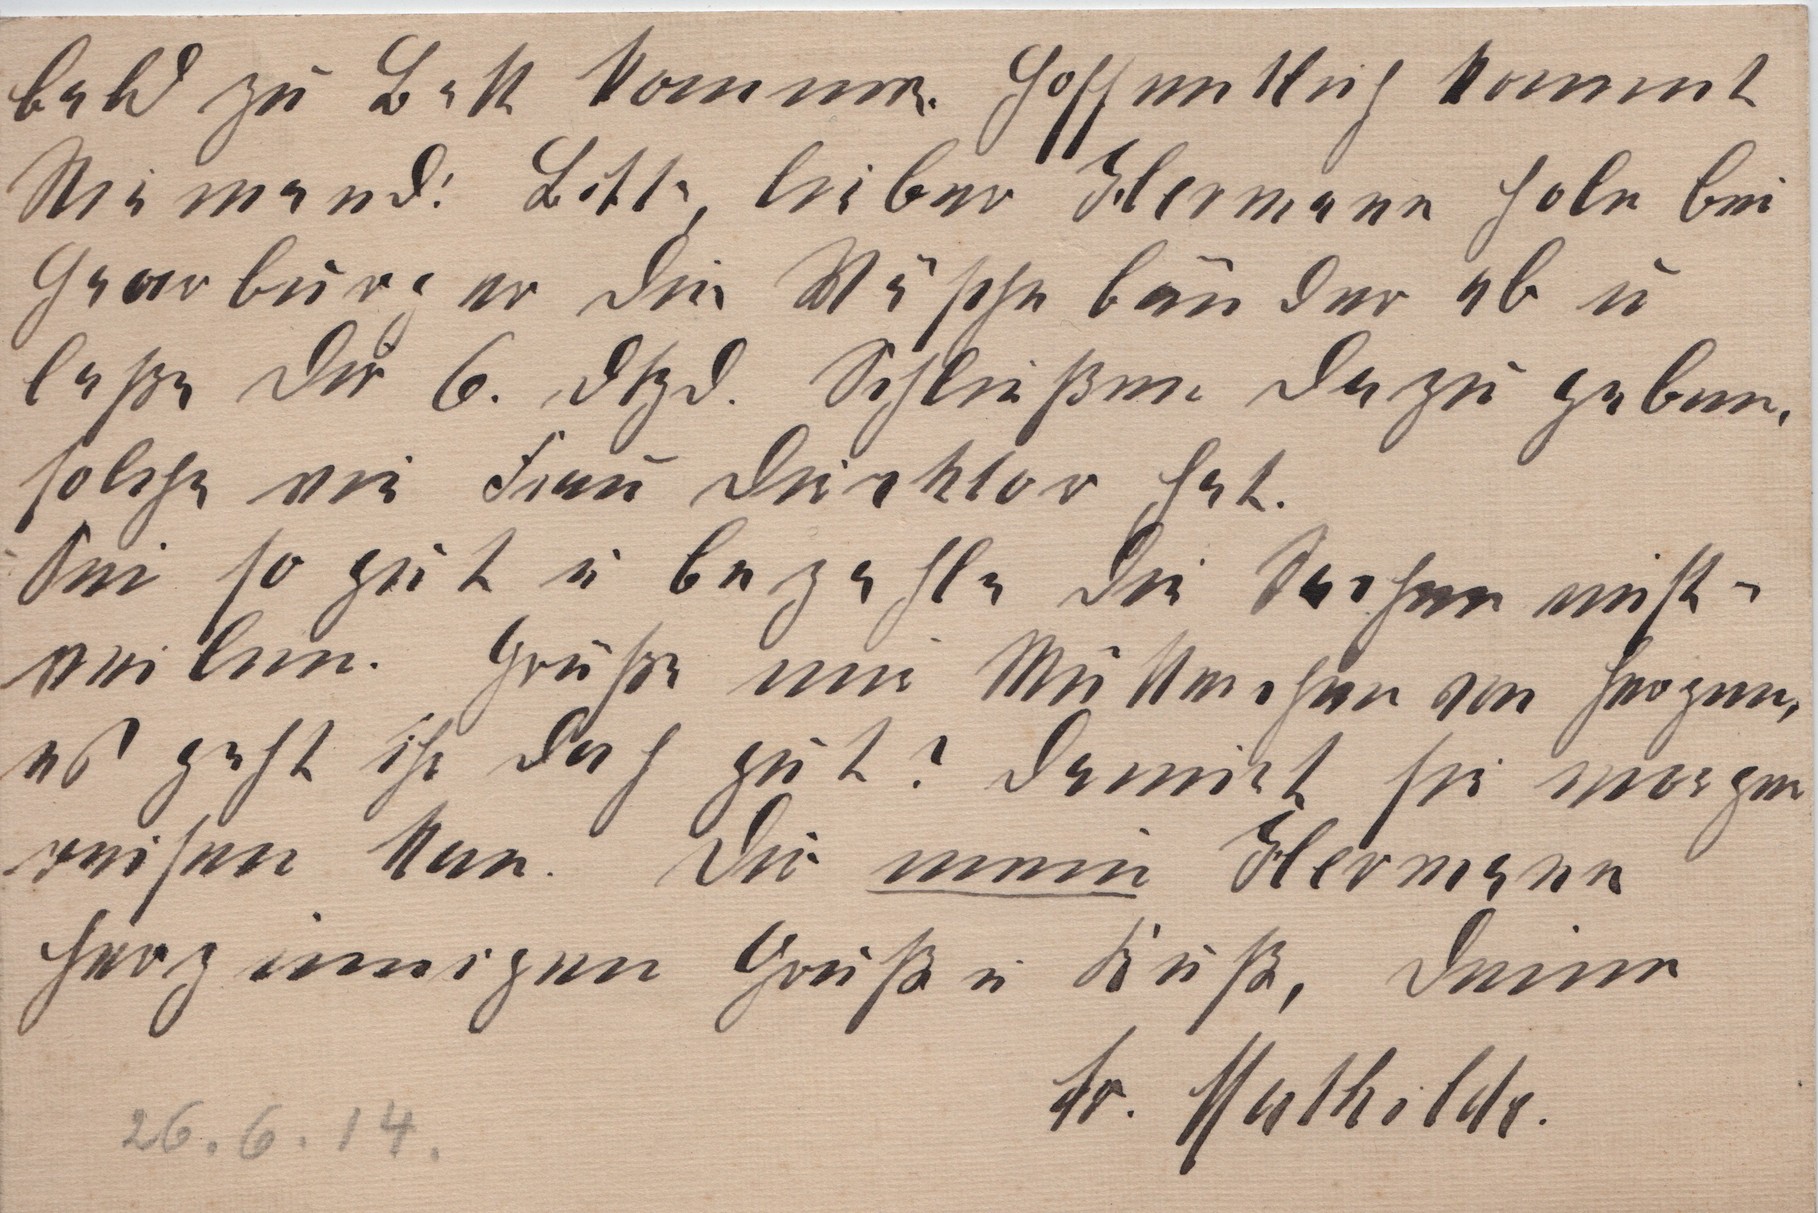 bald zu Bett komme. Hoffentlich kommt
Niemand! Bitte, lieber Hermann hole bei
die Wäschebänder ab u
laße Dir 6. Dtzd. Schließen dazu geben,
solche wie Frau Direktor hat.
Sei so gut u bezahle die Sachen einst-
weilen. Grüße mir Mütterchen von Herzen,
es geht ihr doch gut? Damit sie morgen
reisen kann. Dir mein Hermann
herzinnigen Gruß u Kuß, Deine
tr. Mathilde.
26.6.14.